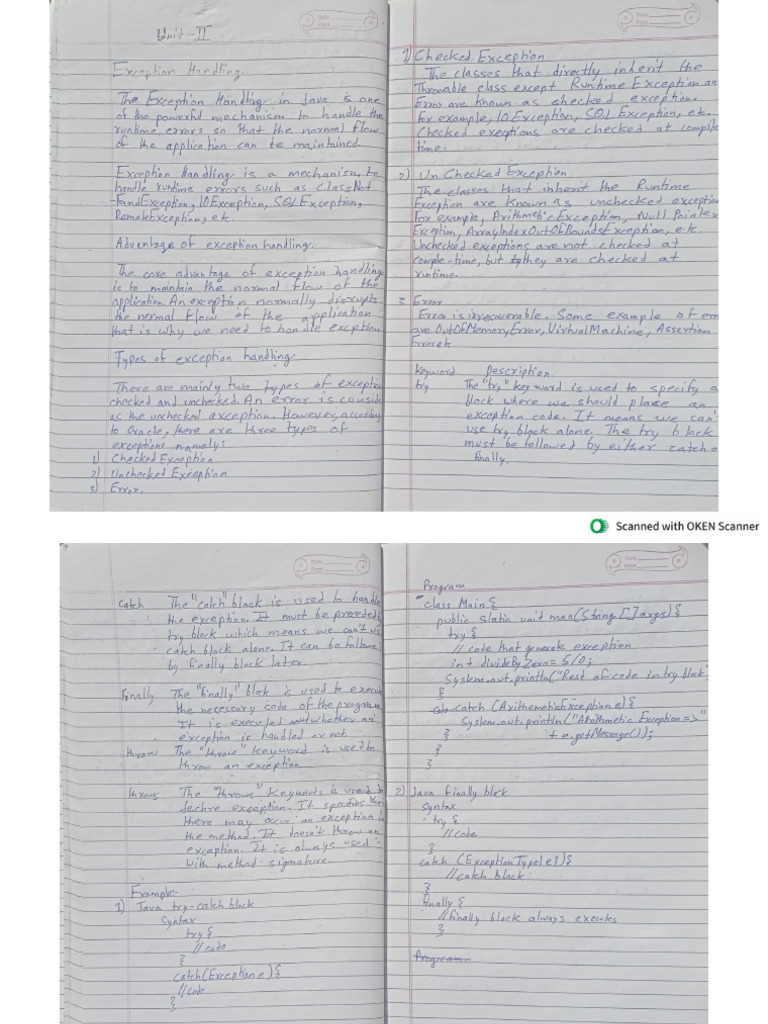 Unit-II
Exception Handling
The Exception Handling in Java is one
of the powerful mechanism to handle the
runtime errors so that the normal flow
of the application can be maintained.
Exception Handling is a mechanism to
handle runtime errors such as ClassNot
FoundException, IOException, SQLException,
RemoteException, etc.
Advantage of exception handling.
The core advantage of exception handling
is to maintain the normal flow of the
application. An exception normally disrupts
the normal flow of the application
that is why we need to handle exception
Types of exception handling
There are mainly two types of exception
checked and unchecked. An error is
as the unchecked exception. However, according
to Oracle, there are three types of
exceptions namely:
1) Checked Exception
2) Unchecked Exception
3) Error.
Date
Page
1) Checked Exception
The classes that directly inherit the
Throwable class except Runtime Exception an
Error are known as checked exception.
For example, IOException, SQL Exception, etc.
Checked exceptions are checked at compile
time.
2) Un Checked Exception
The classes that inherit the Runtime
Exception are known as unchecked exception
For example, Arithmetic Exception, Null Pointer
Exception, ArrayIndexOutOfBoundsException, etc.
Unchecked exceptions are not checked at
comple-time, but they are checked at
runtime.
3 Error
Error is irrecoverable. Some example of
are OutOfMemory,Error, VirtualMachine, Assertion
Error etc
Keyword Description.
try The "try" keyword is used to specify a
block where we should place an
exception code. It means we can't
use try block alone. The try block
must be followed by either catch
finally.
Date
Page
Scanned with OKEN Scanner
catch The "catch" block is used to handle
the exception. It must be preceded
try block which means we can't
catch block alone. It can be followe
by finally block later.
finally The "finally" block is used to execu
the necessary code of the program
It is executed whether an
exception is handled or not.
throw The "throw" keyword is used to
throw an exception.
throws The "throws" keywords is used
declare exception. It specifies
there may occur an exception in
the method. It doesn't throw an
exception. It is always used
with method signature
Example:-
1) Java try-catch block
Syntax
try {
//code
}
catch(Exception e) {
//code
}
Date
Page
Program
class Main {
public static void man(String []args) {
try {
// code that generate exception
int divideByZero = 5/0;
System.out.println("Rest of code in try block"
}
catch (ArithemeticException e) {
System.out.println("Arithmetic Exception =>"
} + e.getMessage());
}
}
2) Java finally block
Syntax
try {
//code
}
catch (ExceptionType1 e1) {
//catch block
}
finally {
//finally block always executes
}
Program
Date
Page